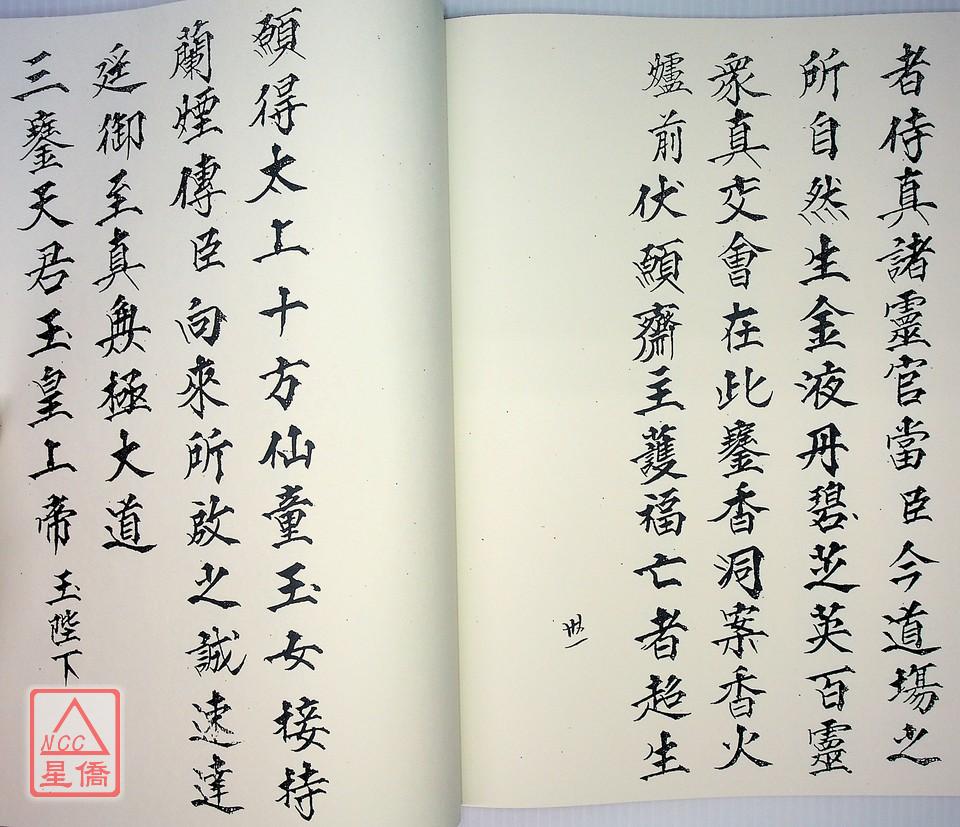 者侍真諸靈官當臣今道場之
所自然生金液丹碧芝英百靈
衆真交會在此鑾香洞案香火
爐前伏願齋主護福亡者超生
卌一
願得太上十方仙童玉女接持
蘭煙傳臣向來所啟之誠速達
逕御至真無極大道
三鑾天君玉皇上帝玉陛下
NCC
星僑